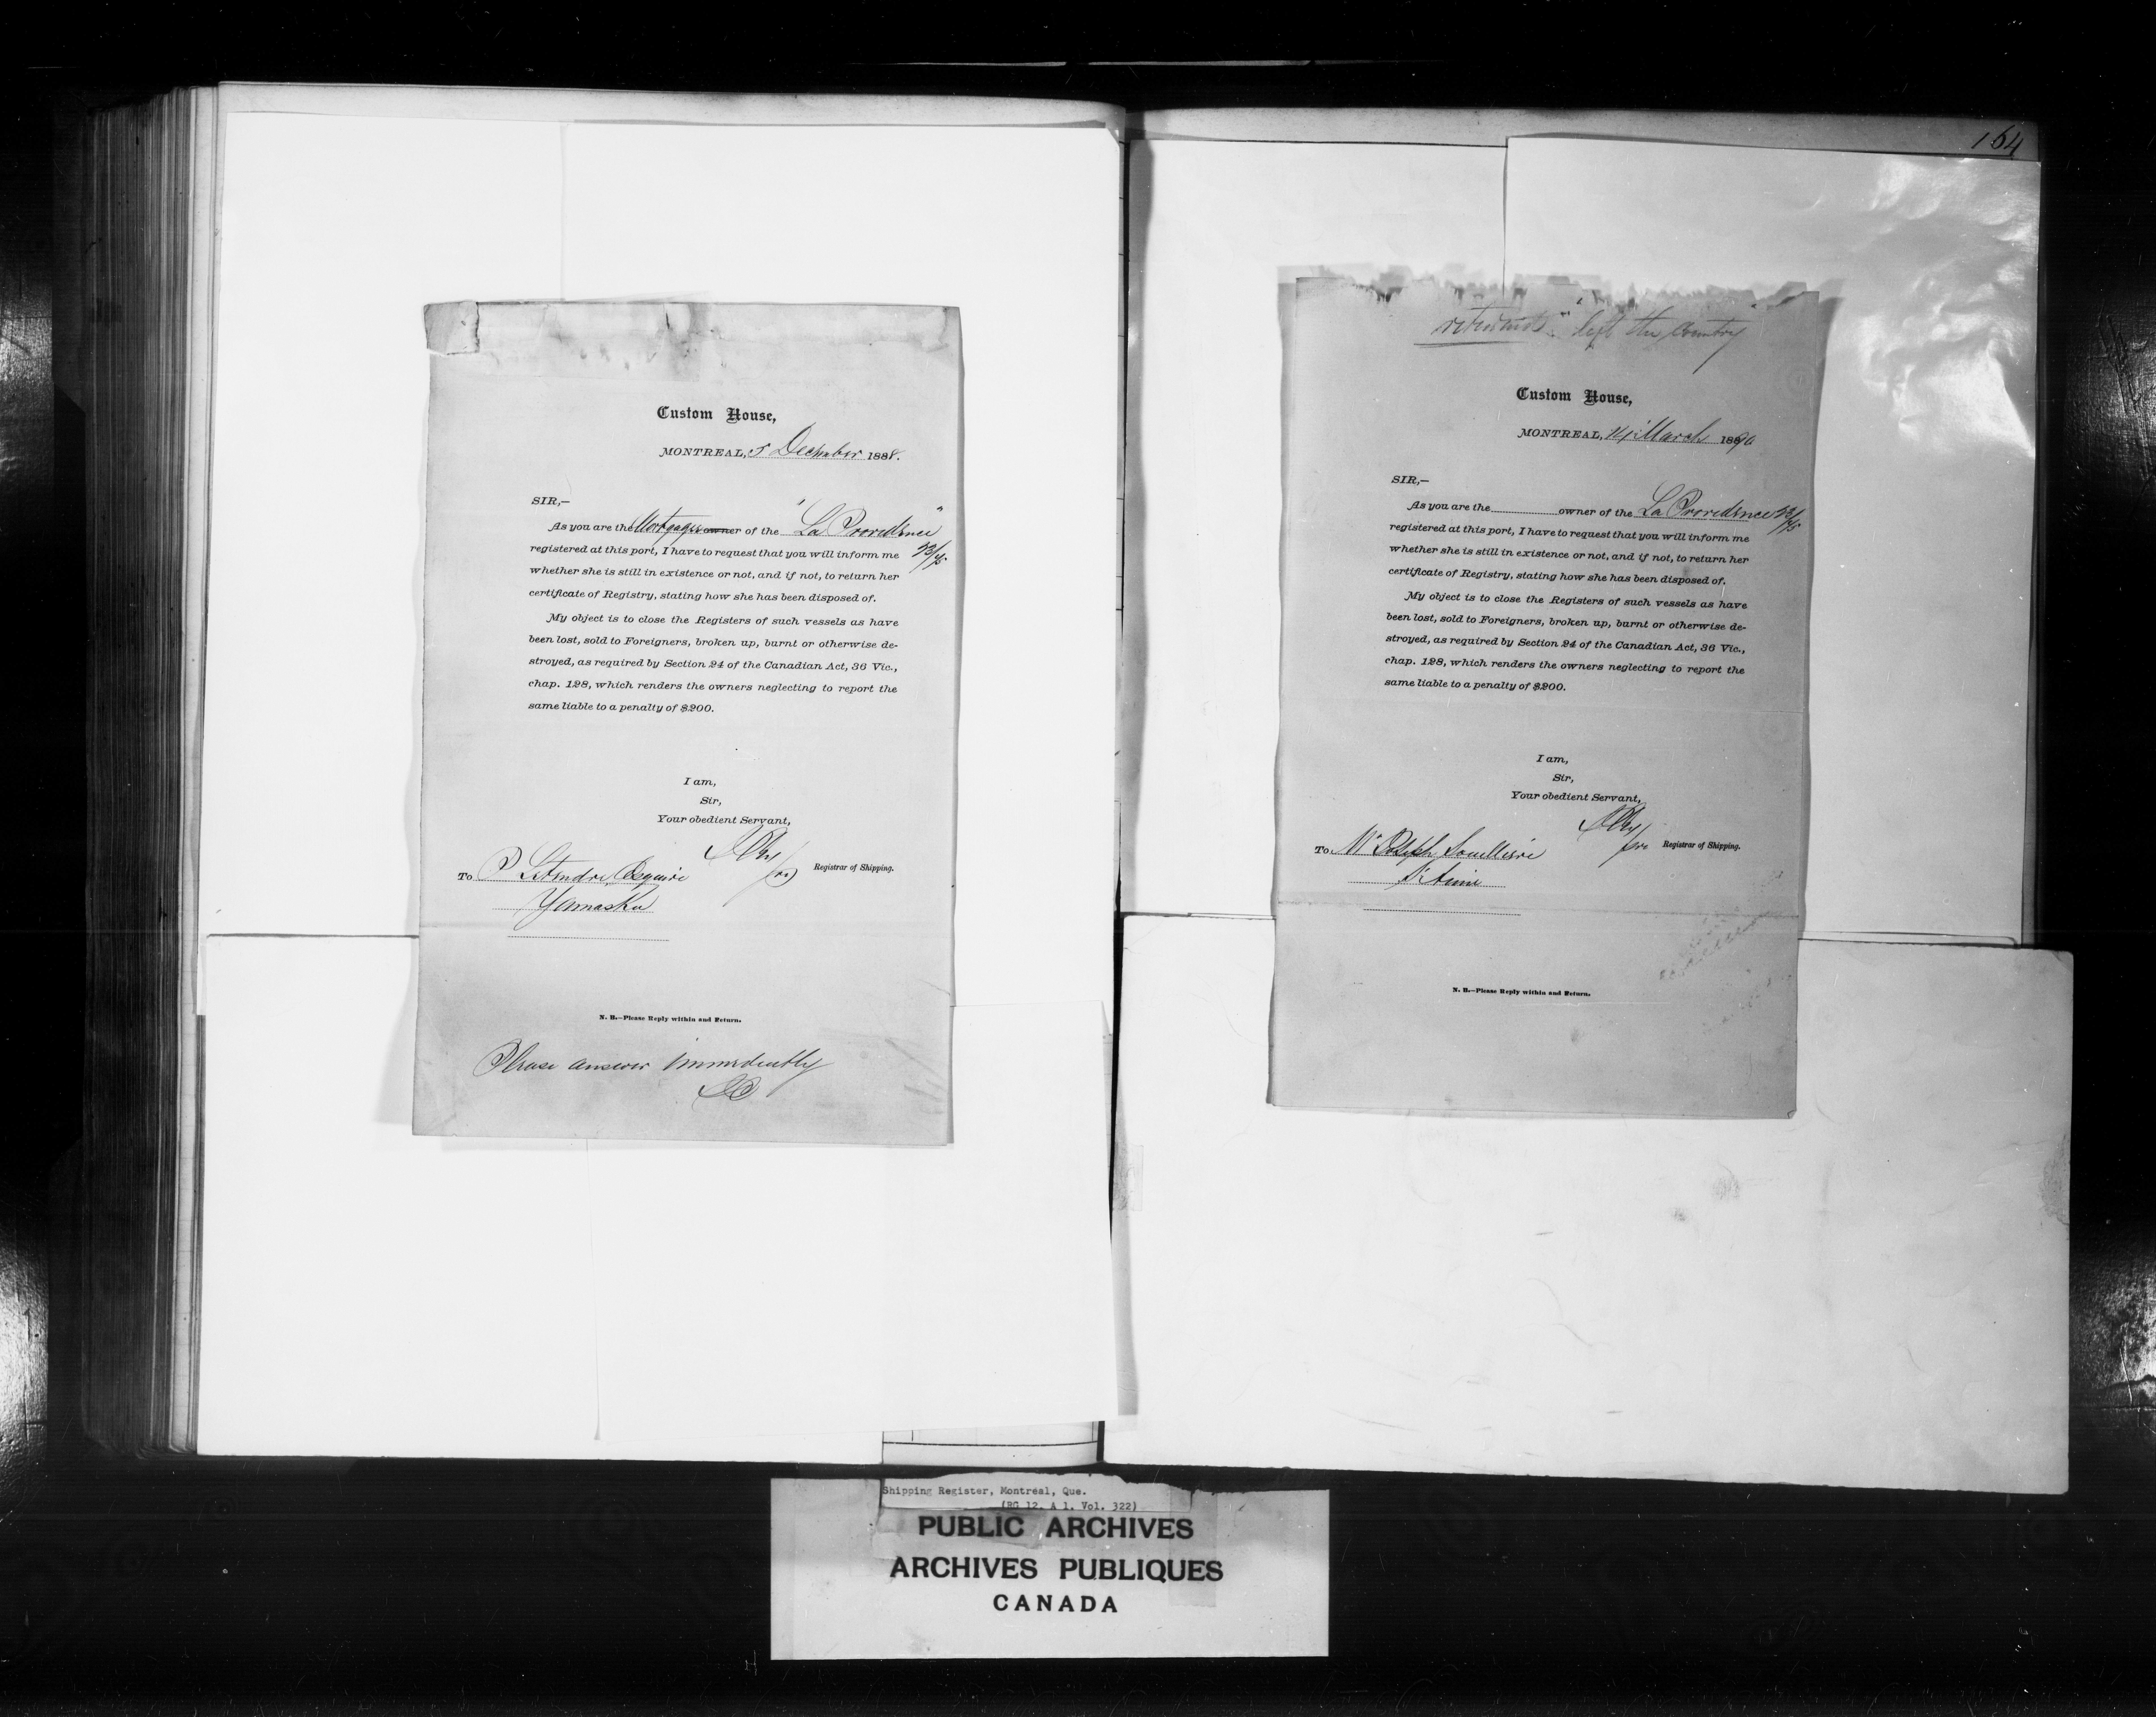 Custom House,
MONTREAL, 5 December 1888.
SIR,—
As you are the Mortgagee owner of the "La Providence"
registered at this port, I have to request that you will inform me 53/75
whether she is still in existence or not, and if not, to return her
certificate of Registry, stating how she has been disposed of.
My object is to close the Registers of such vessels as have
been lost, sold to Foreigners, broken up, burnt or otherwise de-
stroyed, as required by Section 24 of the Canadian Act, 36 Vic.,
chap. 128, which renders the owners neglecting to report the
same liable to a penalty of $200.
I am,
Sir,
Your obedient Servant,
Registrar of Shipping.
To P Letendre Esquire
Yamaska
N. B.—Please Reply within and Return.
Please answer immediently
164
returned "left the Country"
Custom House,
MONTREAL, 14 March 1890
SIR,—
As you are the owner of the La Providence 53/75
registered at this port, I have to request that you will inform me
whether she is still in existence or not, and if not, to return her
certificate of Registry, stating how she has been disposed of.
My object is to close the Registers of such vessels as have
been lost, sold to Foreigners, broken up, burnt or otherwise de-
stroyed, as required by Section 24 of the Canadian Act, 36 Vic.,
chap. 128, which renders the owners neglecting to report the
same liable to a penalty of $200.
I am,
Sir,
Your obedient Servant,
pro Registrar of Shipping.
To Mr Joseph
St Aimé
N. B.—Please Reply within and Return.
Shipping Register, Montreal, Que.
(RG 12, A 1, Vol. 322)
PUBLIC ARCHIVES
ARCHIVES PUBLIQUES
CANADA